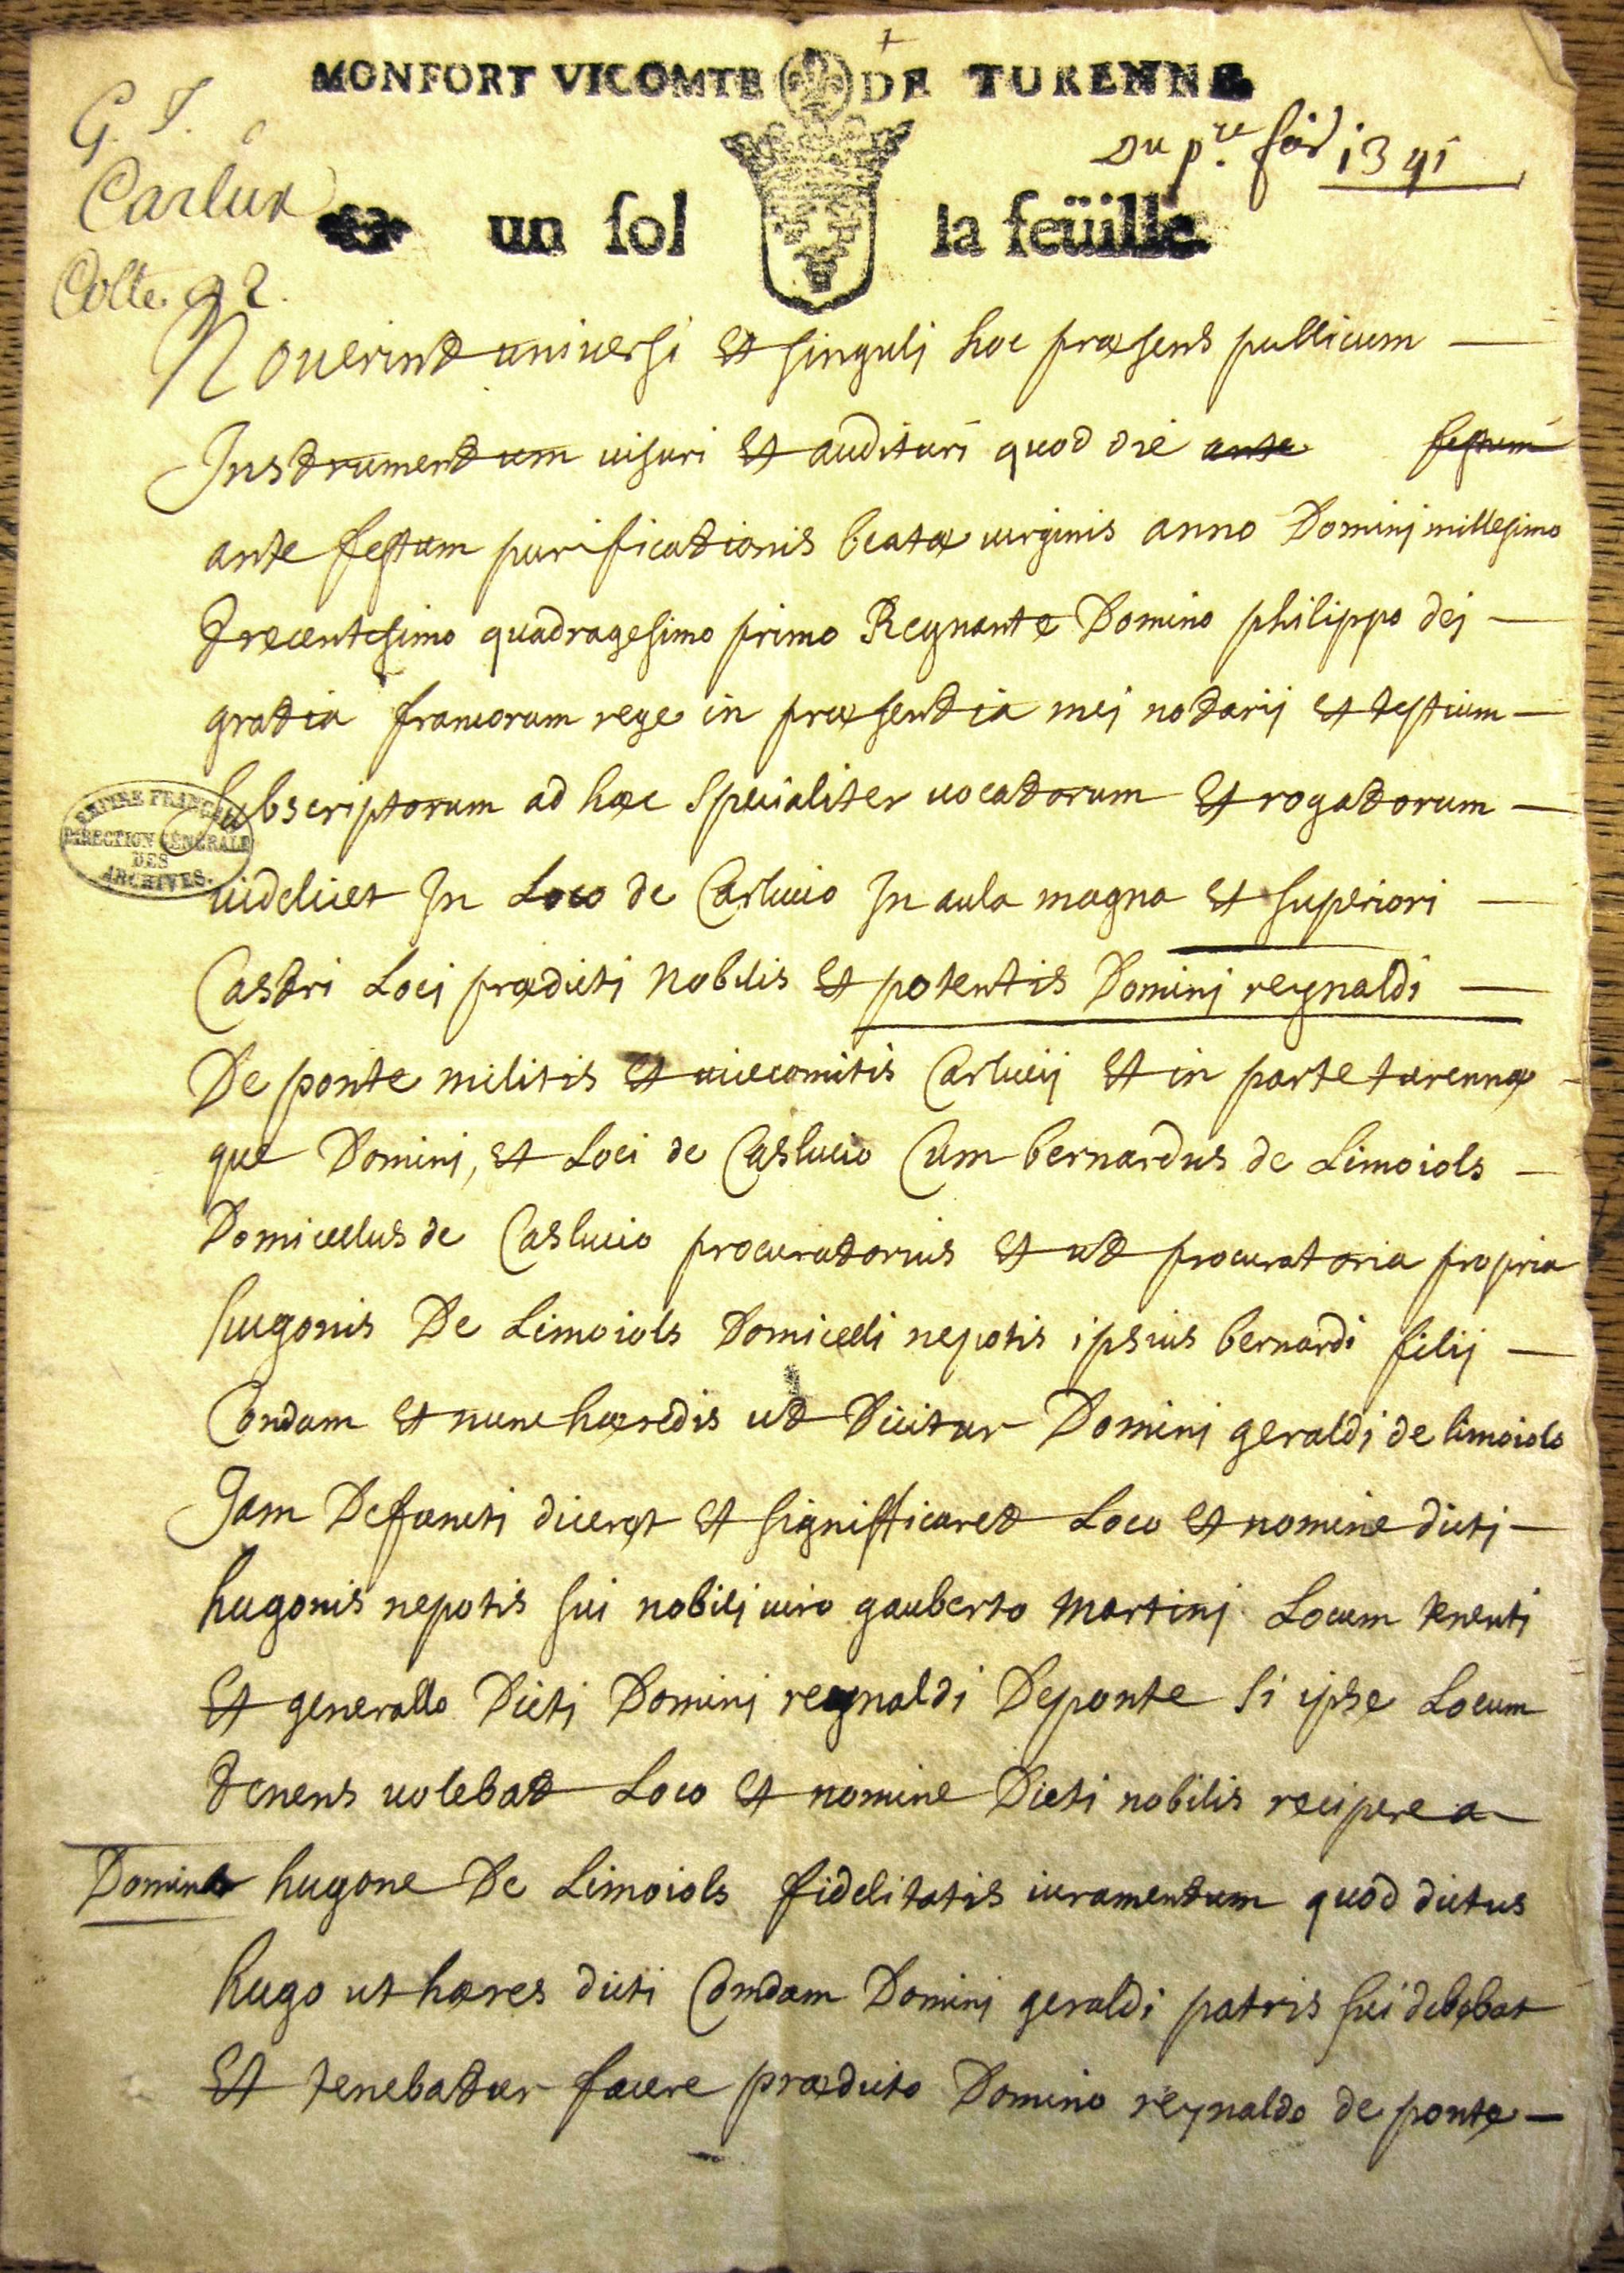 MONFORT VICOMTE DE TURENNE
G. T.
Carlux
Cotte. 92.
Du p.re feb 1341
un sol la feüille
Noverint universi et singuli hoc præsens publicum
Instrumentum visuri et audituri quod die ante festum
ante festum purificationis beatæ virginis anno Dominj millesimo
trecentesimo quadragesimo primo Regnante Domino philippo dej
gratia francorum rege in præsentia mej notarij et testium
subscriptorum ad hæc specialiter vocatorum et rogatorum
EMPIRE FRANÇAIS
DIRECTION GÉNÉRALE
DES
ARCHIVES.
videlicet In Loco de Carlucio In aula magna et superiori
Castri Locj prædicti nobilis et potentis Dominj reynaldi
De ponte militis et vicecomitis Carlucij et in parte turennæ
que Dominj, et Loci de Caslucio Cum bernardus de Limoiols
Domicellus de Caslucio procuratorius et ut procuratoria propria
hugonis De Limoiols Domicelli nepotis ipsius bernardi filij
Condam et nunc hæredis ut Dicitur Dominj geraldj de limoiols
Jam Defuncti diceret et significaret Loco et nomine dictj
hugonis nepotis sui nobilj viro gauberto Martinj Locum tenenti
et generallo Dictj Dominj reynaldi Deponte si ipse Locum
tenens volebat Loco et nomine Dicti nobilis recipere a
Domino hugone De Limoiols fidelitatis iuramentum quod dictus
hugo ut hæres dicti Condam Dominj geraldi patris sui debebat
et tenebatur facere prædicto Domino reynaldo de ponte